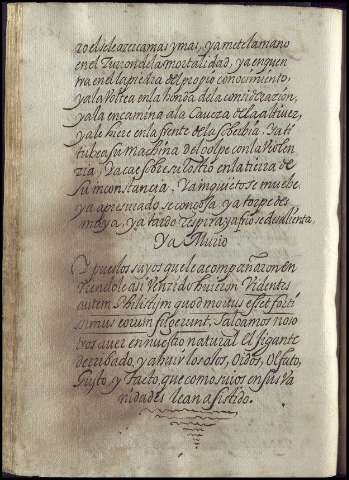 ro el se le azerca mas y mas, ya mete la mano
en el Turron de la mortalidad, ya enquen
tra en el la piedra del propio conocimiento,
ya la voltea en la honda de la consideraçion,
ya la encamina a la Caveza de la altivez,
ya le hiere en la frente de la soberbia, ya ti
tubea su machina del golpe con la violen
zia, ya cae sobre su rostro en la tierra de
su inconstancia, ya inquieto se mueve
ya apresurado se congoja ya torpe des
maya, ya tardo respira ya frio se desalienta,
Ya Murio
Y pues los suyos que le acompañaron en
viendole asi Venzido huieron Videntes
autem Philistijm quod mortuus esset forti
simus eorum fugerunt, salgamos noso
tros a ver en nuestro natural el gigante
derribado, y a huir los ojos, Oidos, Olfato,
Gusto, y Tacto, que como suios en sus va
nidades le an asistido.